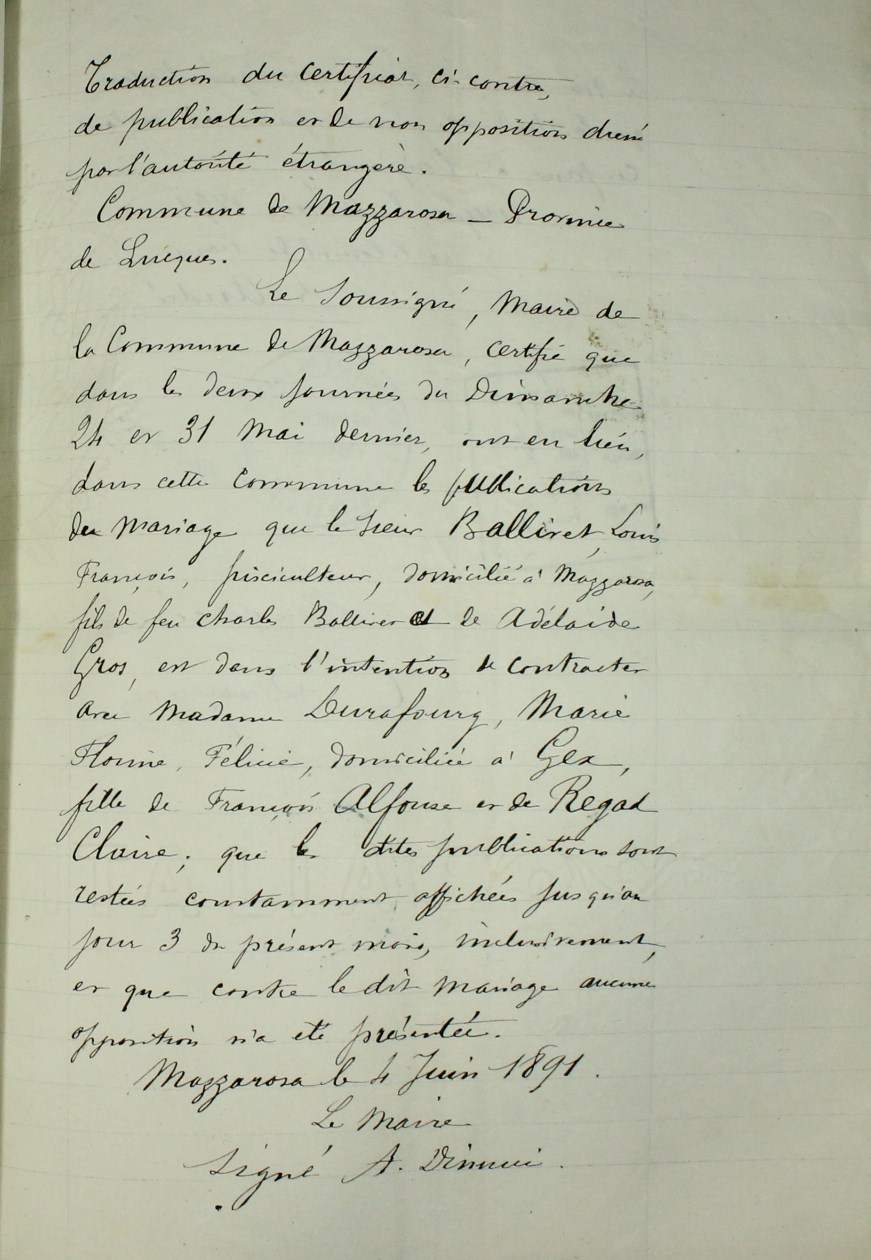 Traduction du certificat, ci-contre,
de publication et de non opposition dressé
par l'autorité étrangère.
Commune de Mazzarosa _ Province
de Lucques.
Le Soussigné, Maire de
la Commune de Mazzarosa, certifie que
dans les deux journées du Dimanche
24 et 31 Mai dernier, ont eu lieu,
dans cette Commune les publications
du Mariage que le Sieur Balliret, Louis
François, pisciculteur, domicilié à Mazzarosa,
fils de feu Charles Balliret et de Adélaïde
Gros, est dans l'intention de contracter
avec Madame Durafourg, Marie
Félicie, domiciliée à Gex,
fille de François Alfonse et de Regad
Claire; que les dites publications sont
restées constamment affichées jusqu'au
jour 3 du présent mois, inclusivement,
et que contre le dit Mariage aucune
opposition n'a été présentée.
Mazzarosa le 4 Juin 1891.
Le Maire
Signé A.